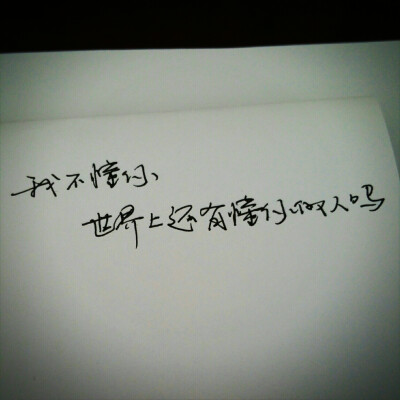 我不懂你、
世界上还有懂你的人吗